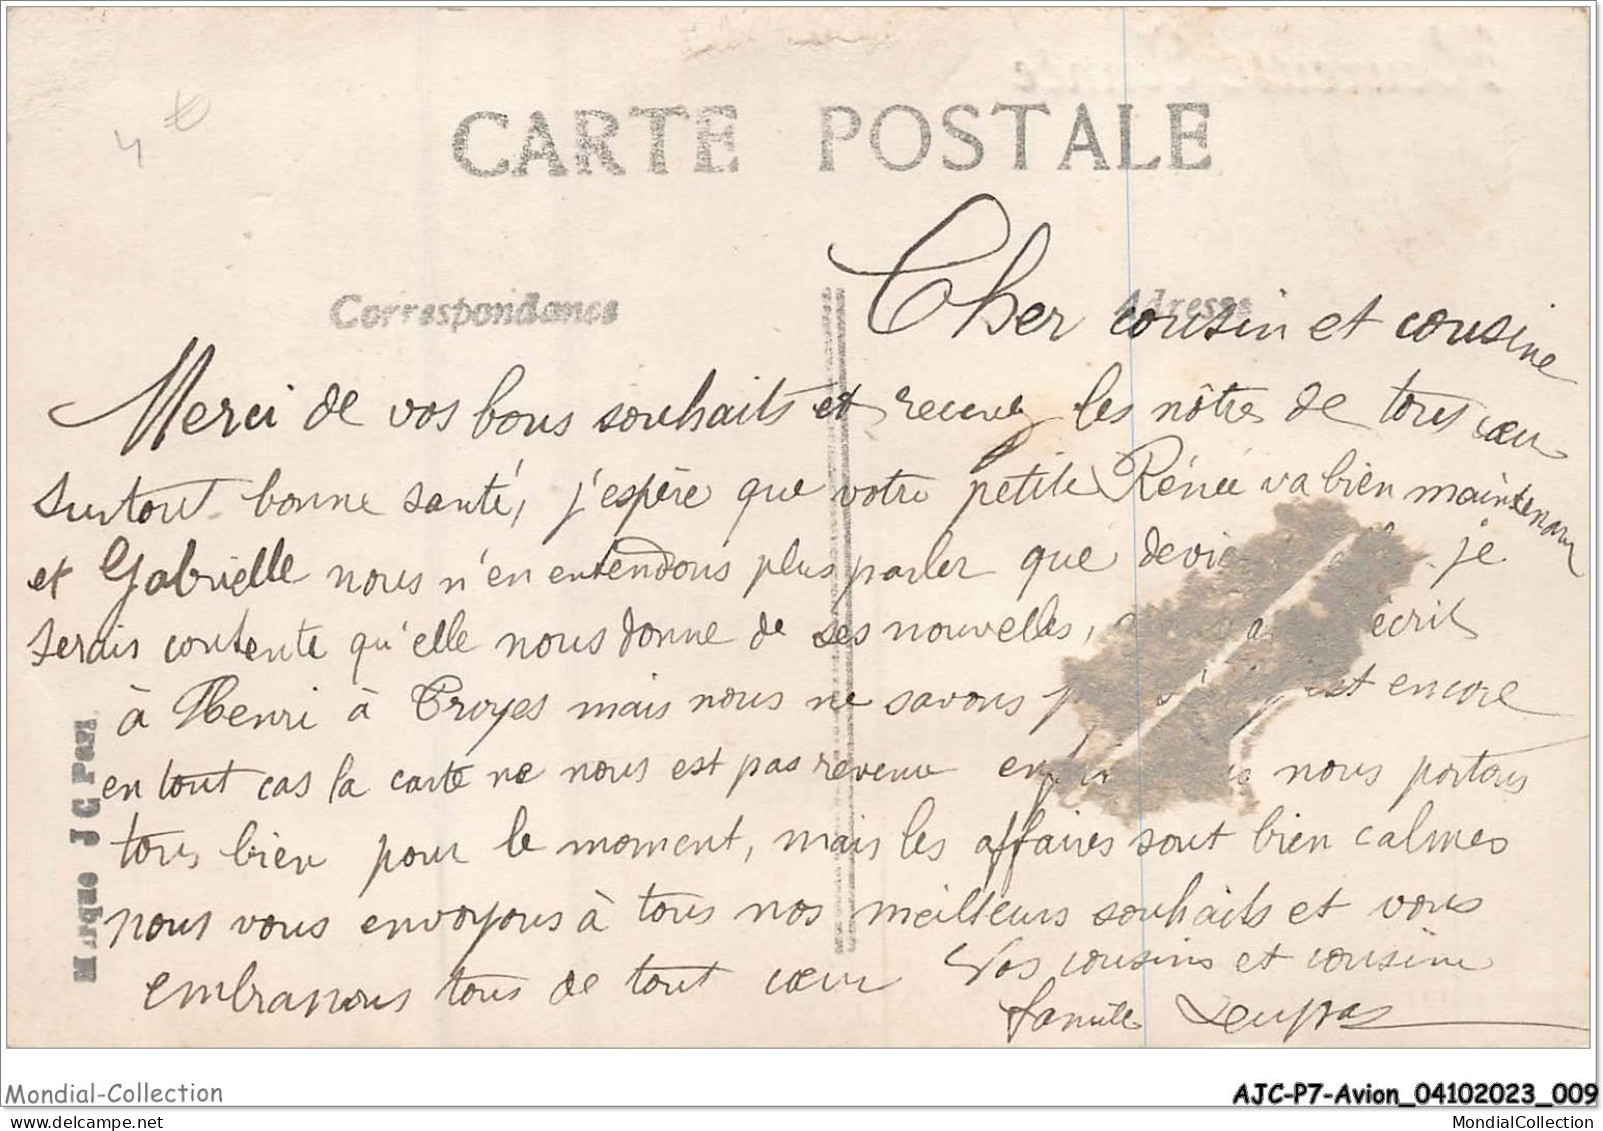 4 €
CARTE POSTALE
Correspondance
Adresse
Cher cousin et cousine
Merci de vos bons souhaits et recevez les nôtres de tous cœur
surtout bonne santé, j'espère que votre petite Rénée va bien maintenant
et Gabrielle nous n'en entendons plus parler que je
serais contente qu'elle nous donne de ses nouvelles, écrit
à Henri à Troyes mais nous ne savons est encore
en tout cas la carte ne nous est pas revenue nous portons
tous bien pour le moment, mais les affaires sont bien calmes
nous vous envoyons à tous nos meilleurs souhaits et vous
embrassons tous de tout cœur Vos cousins et cousine
famille
Marque J C Paris
Mondial-Collection
AJC-P7-Avion_04102023_009
www.mondial-collection.com
MondialCollection